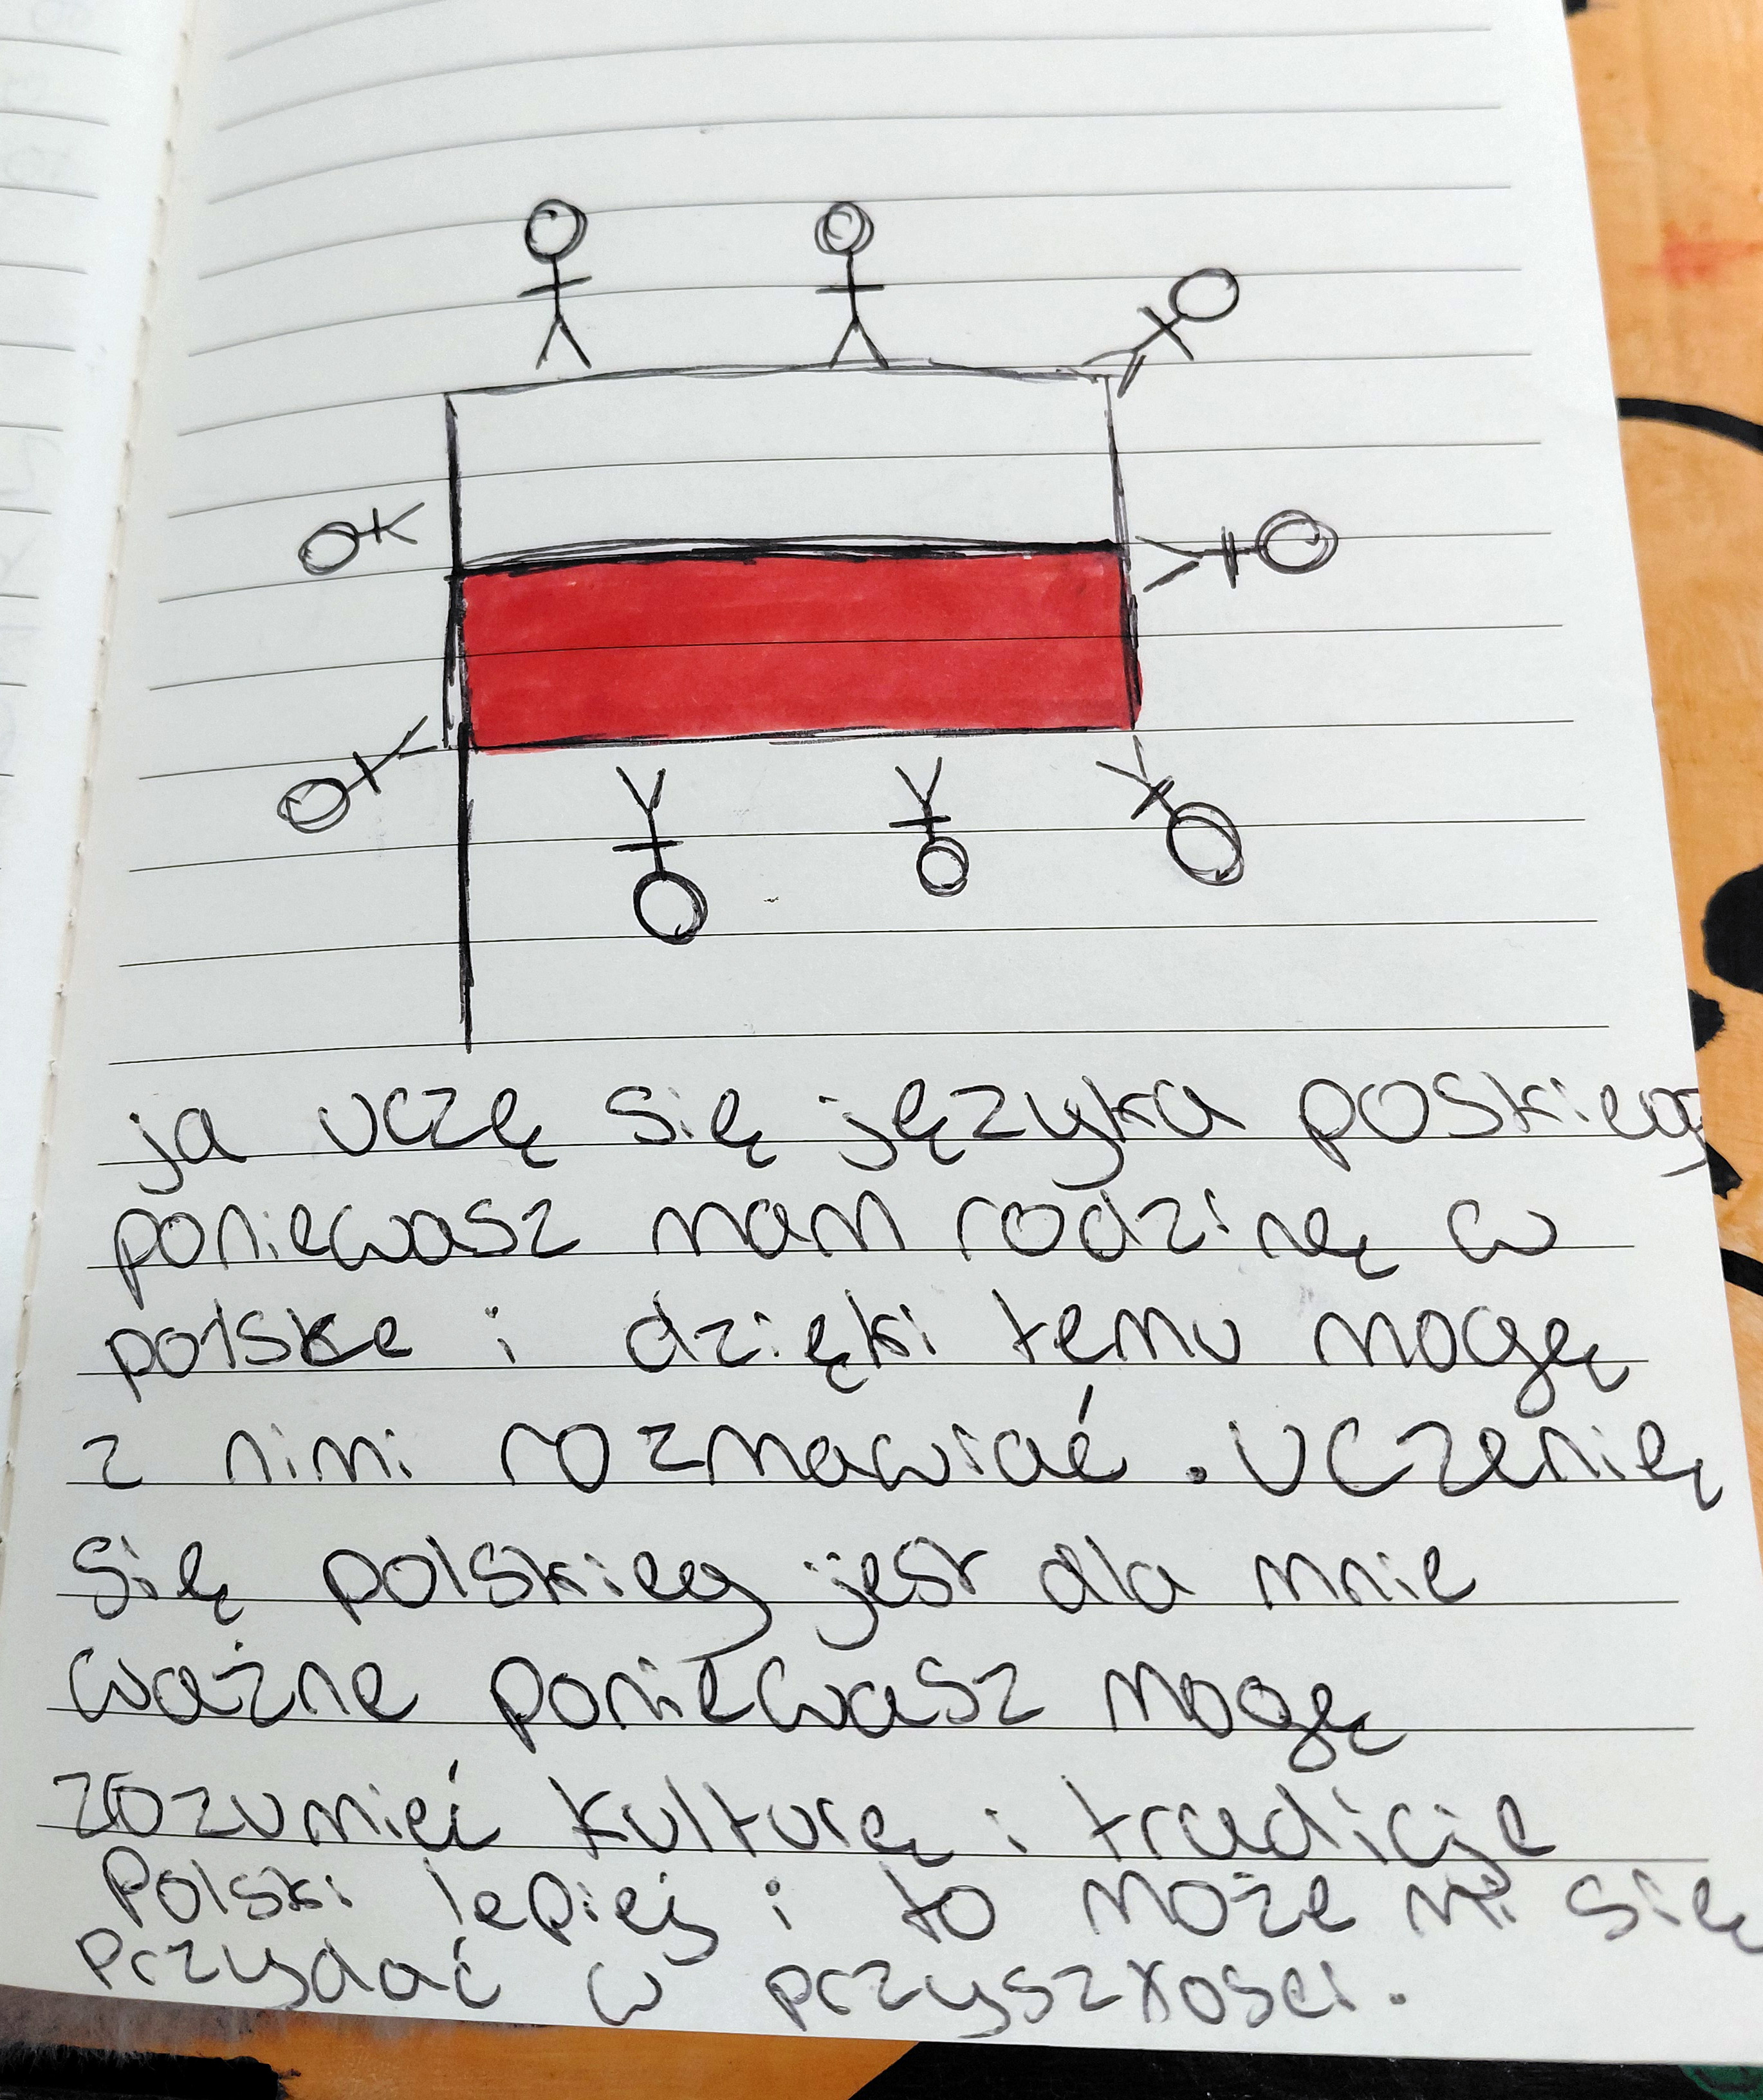 ja uczę się języka poskieg
poniewasz mam rodzinę w
polske i dzięki temu mogę
z nimi rozmawiać. uczenię
się polskieg jest dla mnie
ważne poniewasz mogę
zozumieć kulturę i tradicje
Polski lepiej i to może mi się
Przydać w przyszłosci.